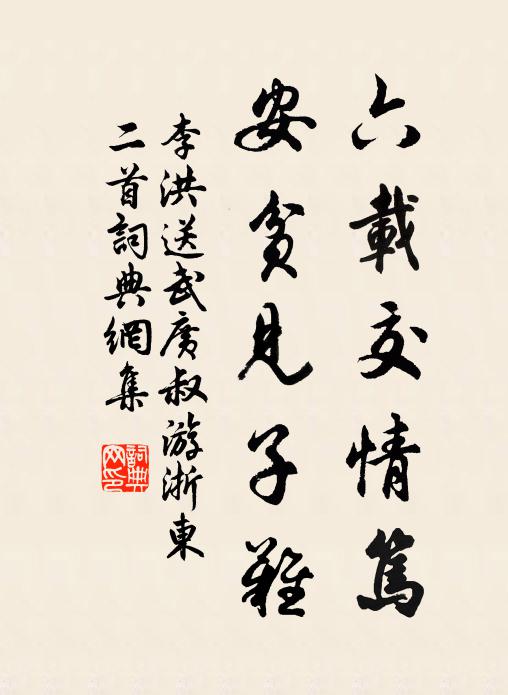 六載交情篤
安貧見子難
李洪送武廣叔游浙東
二首詞典網集
詞典
网印